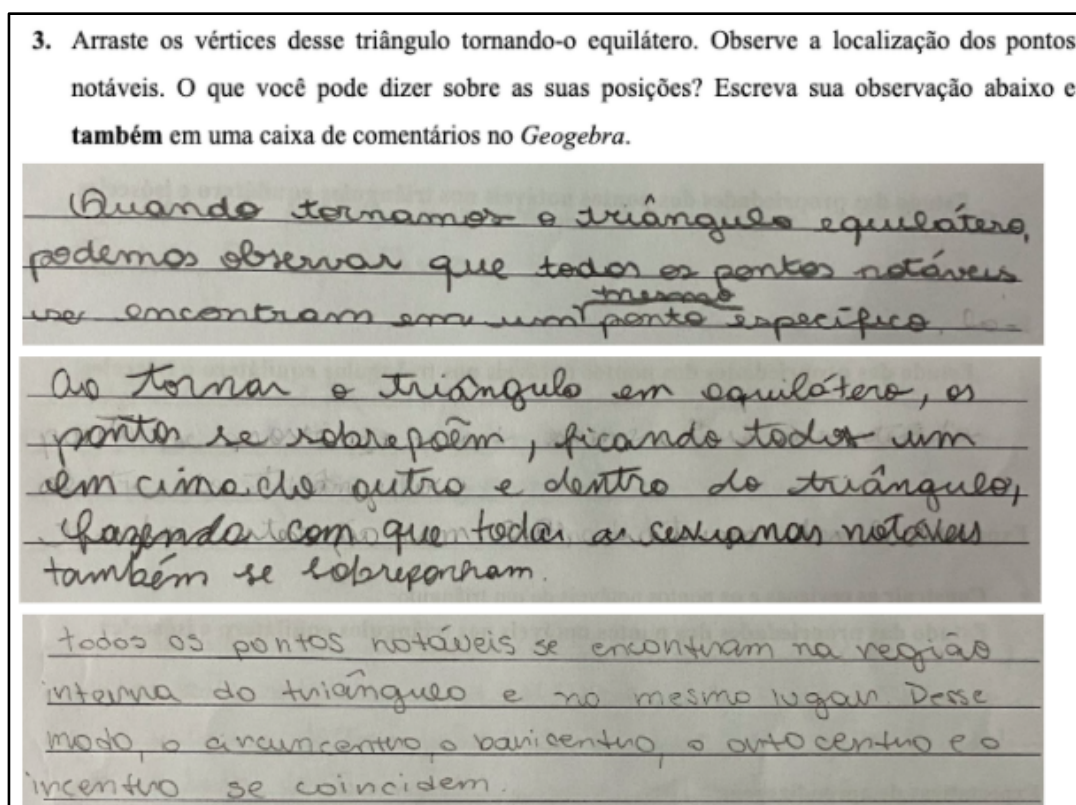 3. Arraste os vértices desse triângulo tornando-o equilátero. Observe a localização dos pontos
notáveis. O que você pode dizer sobre as suas posições? Escreva sua observação abaixo e
também em uma caixa de comentários no Geogebra.
Quando tornamos o triângulo equilátero,
podemos observar que todos os pontos notáveis
mesmo
se encontram em um ponto específico.
Ao tornar o triângulo em equilátero, os
pontos se sobrepõem, ficando todos um
em cima do outro e dentro do triângulo,
fazendo com que todas as cevianas notáveis
também se sobreponham.
todos os pontos notáveis se encontram na região
interna do triângulo e no mesmo lugar. Desse
modo, o circuncentro, o baricentro, o ortocentro e o
incentro se coincidem.